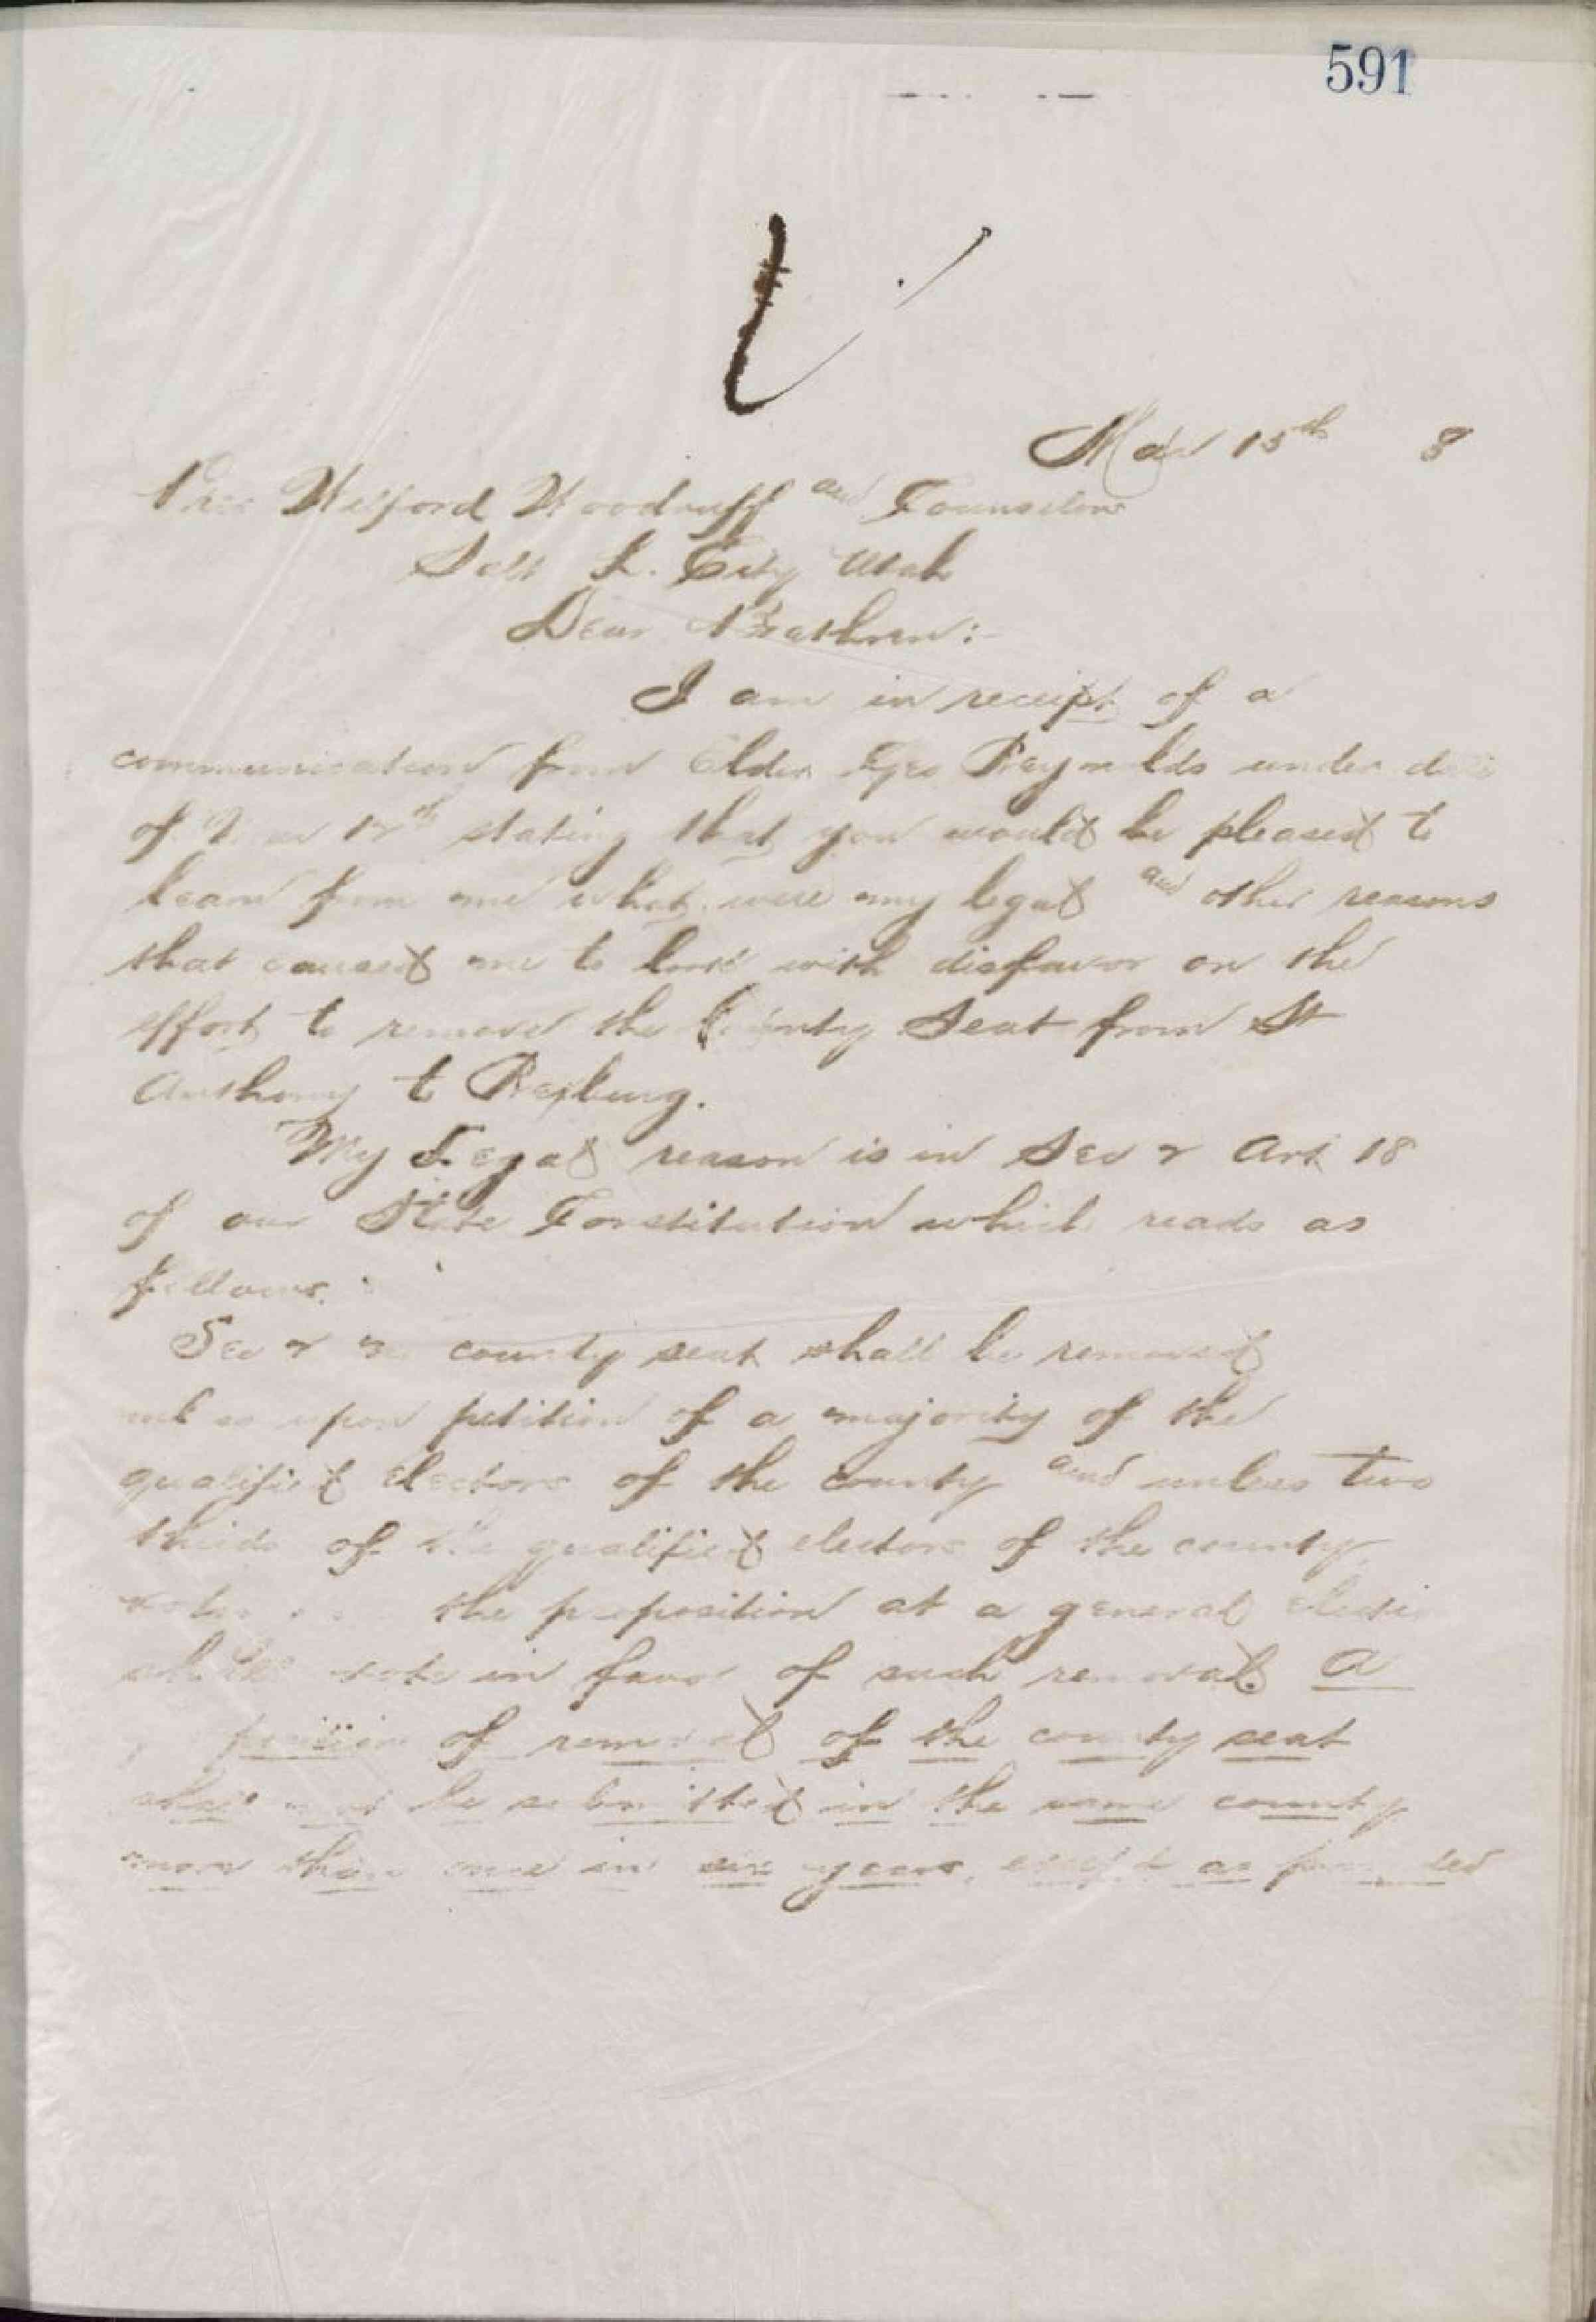 591
Mar 15th 8
Pres Wilford Woodruff and Counselors
Salt L. City Utah
Dear Brethren:-
I am in receipt of a
communication from Elder Geo Reynolds under date
of 12th stating that you would be pleased to
learn from me what were my legal and other reasons
that caused me to look with disfavor on the
effort to remove the County Seat from St
Anthony to Rexburg.
My Legal reason is in Sec 2 Art 18
of our State Constitution which reads as
follows:
Sec 2 No county seat shall be removed
unless upon petition of a majority of the
qualified electors of the county and unless two
thirds of the qualified electors of the county
the proposition at a general electi
shall vote in favor of such removal. A
of removal of the county seat
shall not be submitted in the same county
more than once in six years, except as provided